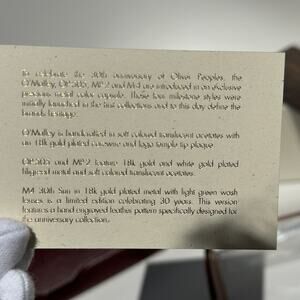 To celebrate the 30th anniversary of Oliver Peoples, the
O'Malley, OP-505, MP-2 and M-4 are introduced in an exclusive
precious metal color capsule. These four milestone styles were
initially launched in the first collections and to this day define the
brand's heritage.
O'Malley is handcrafted in soft colored translucent acetates with
an 18k gold plated corewire and logo temple tip plaque.
OP-505 and MP-2 feature 18k gold and white gold plated
filigreed metal and soft colored translucent acetates.
M-4 30th Sun in 18k gold plated metal with light green wash
lenses is a limited edition celebrating 30 years. This version
features a hand engraved feather pattern specifically designed for
the anniversary collection.